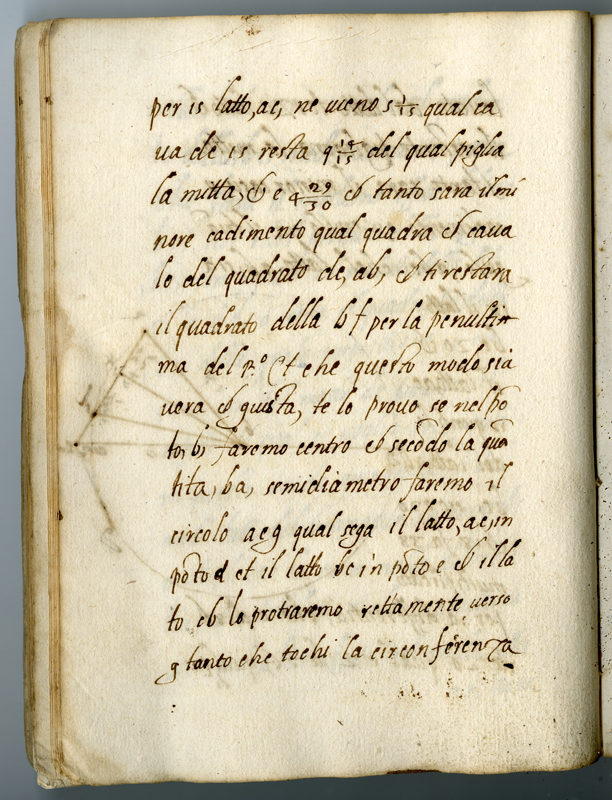 per 15 latto, ac, ne uieno 5 1/15 qual ca
ua de 15 resta 9 14/15 del qual piglia
la mitta, & e 4 29/30 & tanto sara il mi
nore cadimento qual quadra & caua
lo del quadrato de, ab, & ti restara
il quadrato della bf per la penulti
ma del p.º Et che questo modo sia
uera & giusta, te lo prouo se nel põ
to, b, faremo centro & secõdo la quã
tita, ba, semidiametro faremo il
circolo aeg qual sega il latto, ac, in
põto d et il latto bc in põto e & il la
to cb lo protraremo rettamente uerso
g tanto che tochi la circonferenza